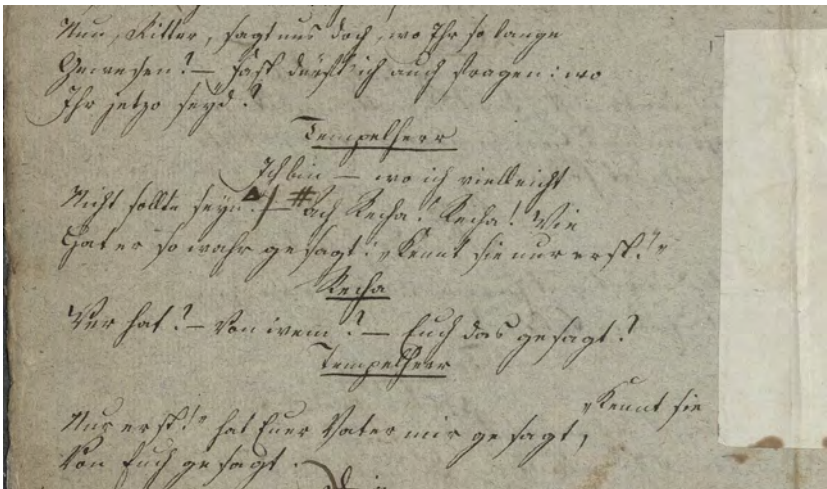 Nun, Ritter, sagt uns doch, wo Ihr so lange
Gewesen? — fast dürft' ich auch fragen: wo
Ihr jetzo seyd?
Tempelherr
Ich bin — wo ich vielleicht
Nicht sollte seyn. — # ach Recha! Recha! Wie
Hat er so wahr gesagt: „Kennt sie nur erst!"
Recha
Wer hat? — Von wem? — Euch das gesagt?
Tempelherr
„Kennt sie
Nur erst!" hat Euer Vater mir gesagt,
Von Euch gesagt.